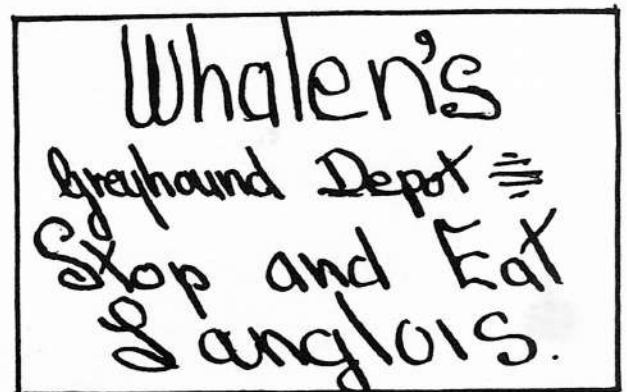 Whalen's
Greyhound Depot
Stop and Eat
Langlois.